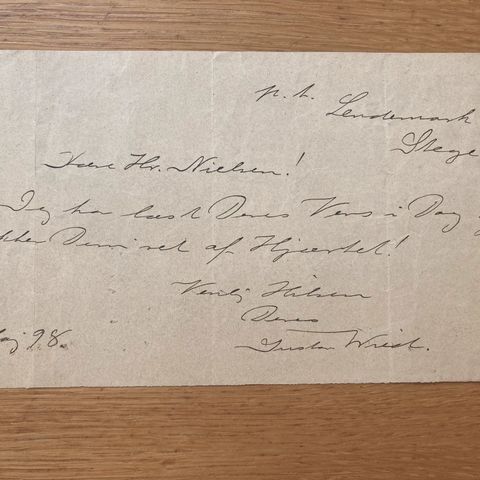 p. t. Lendemark
Stege
Kære Hr. Nielsen!
Jeg har læst Deres Vers i Dag
takker Dem ret af Hjærtet!
Venlig Hilsen
Deres
Gustav Wied.
Maj 98.